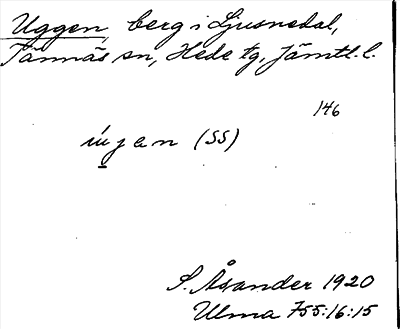 Uggen, berg i Ljusnedal,
Tännäs sn, Hede tg, Jämtl. l.
146
(SS)
S. Åsander 1920
Ulma 755:16:15